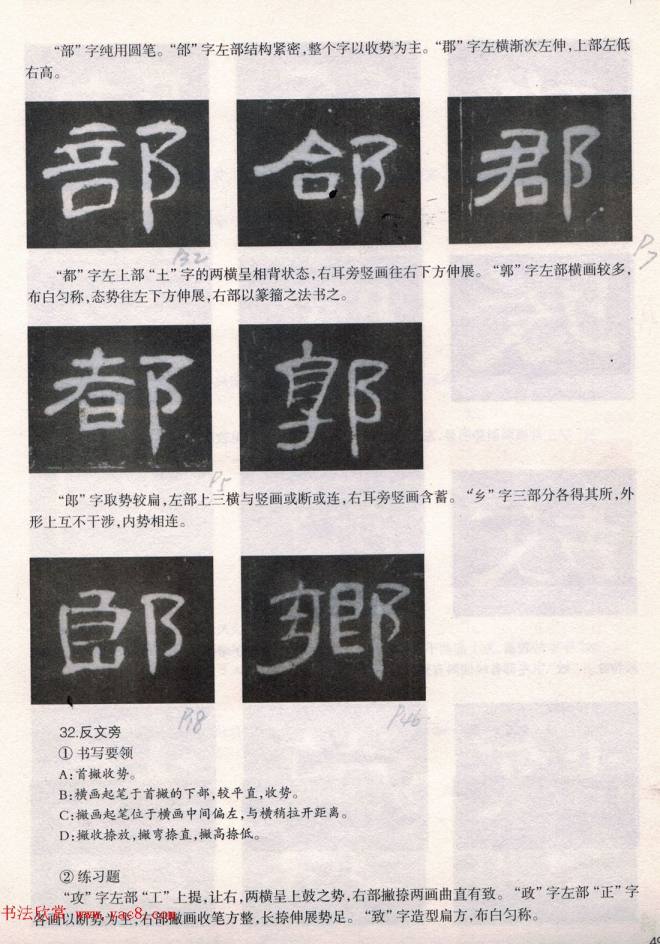 “部”字纯用圆笔。“郃”字左部结构紧密，整个字以收势为主。“郡”字左横渐次左伸，上部左低
右高。
部 郃 郡
P32
P7
“都”字左上部“土”字的两横呈相背状态，右耳旁竖画往右下方伸展。“郭”字左部横画较多，
布白匀称，态势往左下方伸展，右部以篆籀之法书之。
都 郭
P5
“郎”字取势较扁，左部上三横与竖画或断或连，右耳旁竖画含蓄。“乡”字三部分各得其所，外
形上互不干涉，内势相连。
郎 鄉
P18 P46
32.反文旁
① 书写要领
A：首撇收势。
B：横画起笔于首撇的下部，较平直，收势。
C：撇画起笔位于横画中间偏左，与横稍拉开距离。
D：撇收捺放，撇弯捺直，撇高捺低。
② 练习题
“攻”字左部“工”上提，让右，两横呈上鼓之势，右部撇捺两画曲直有致。“政”字左部“正”字
各画以断势为主，右部撇画收笔方整，长捺伸展势足。“致”字造型扁方，布白匀称。
书法欣赏 www.yac8.com